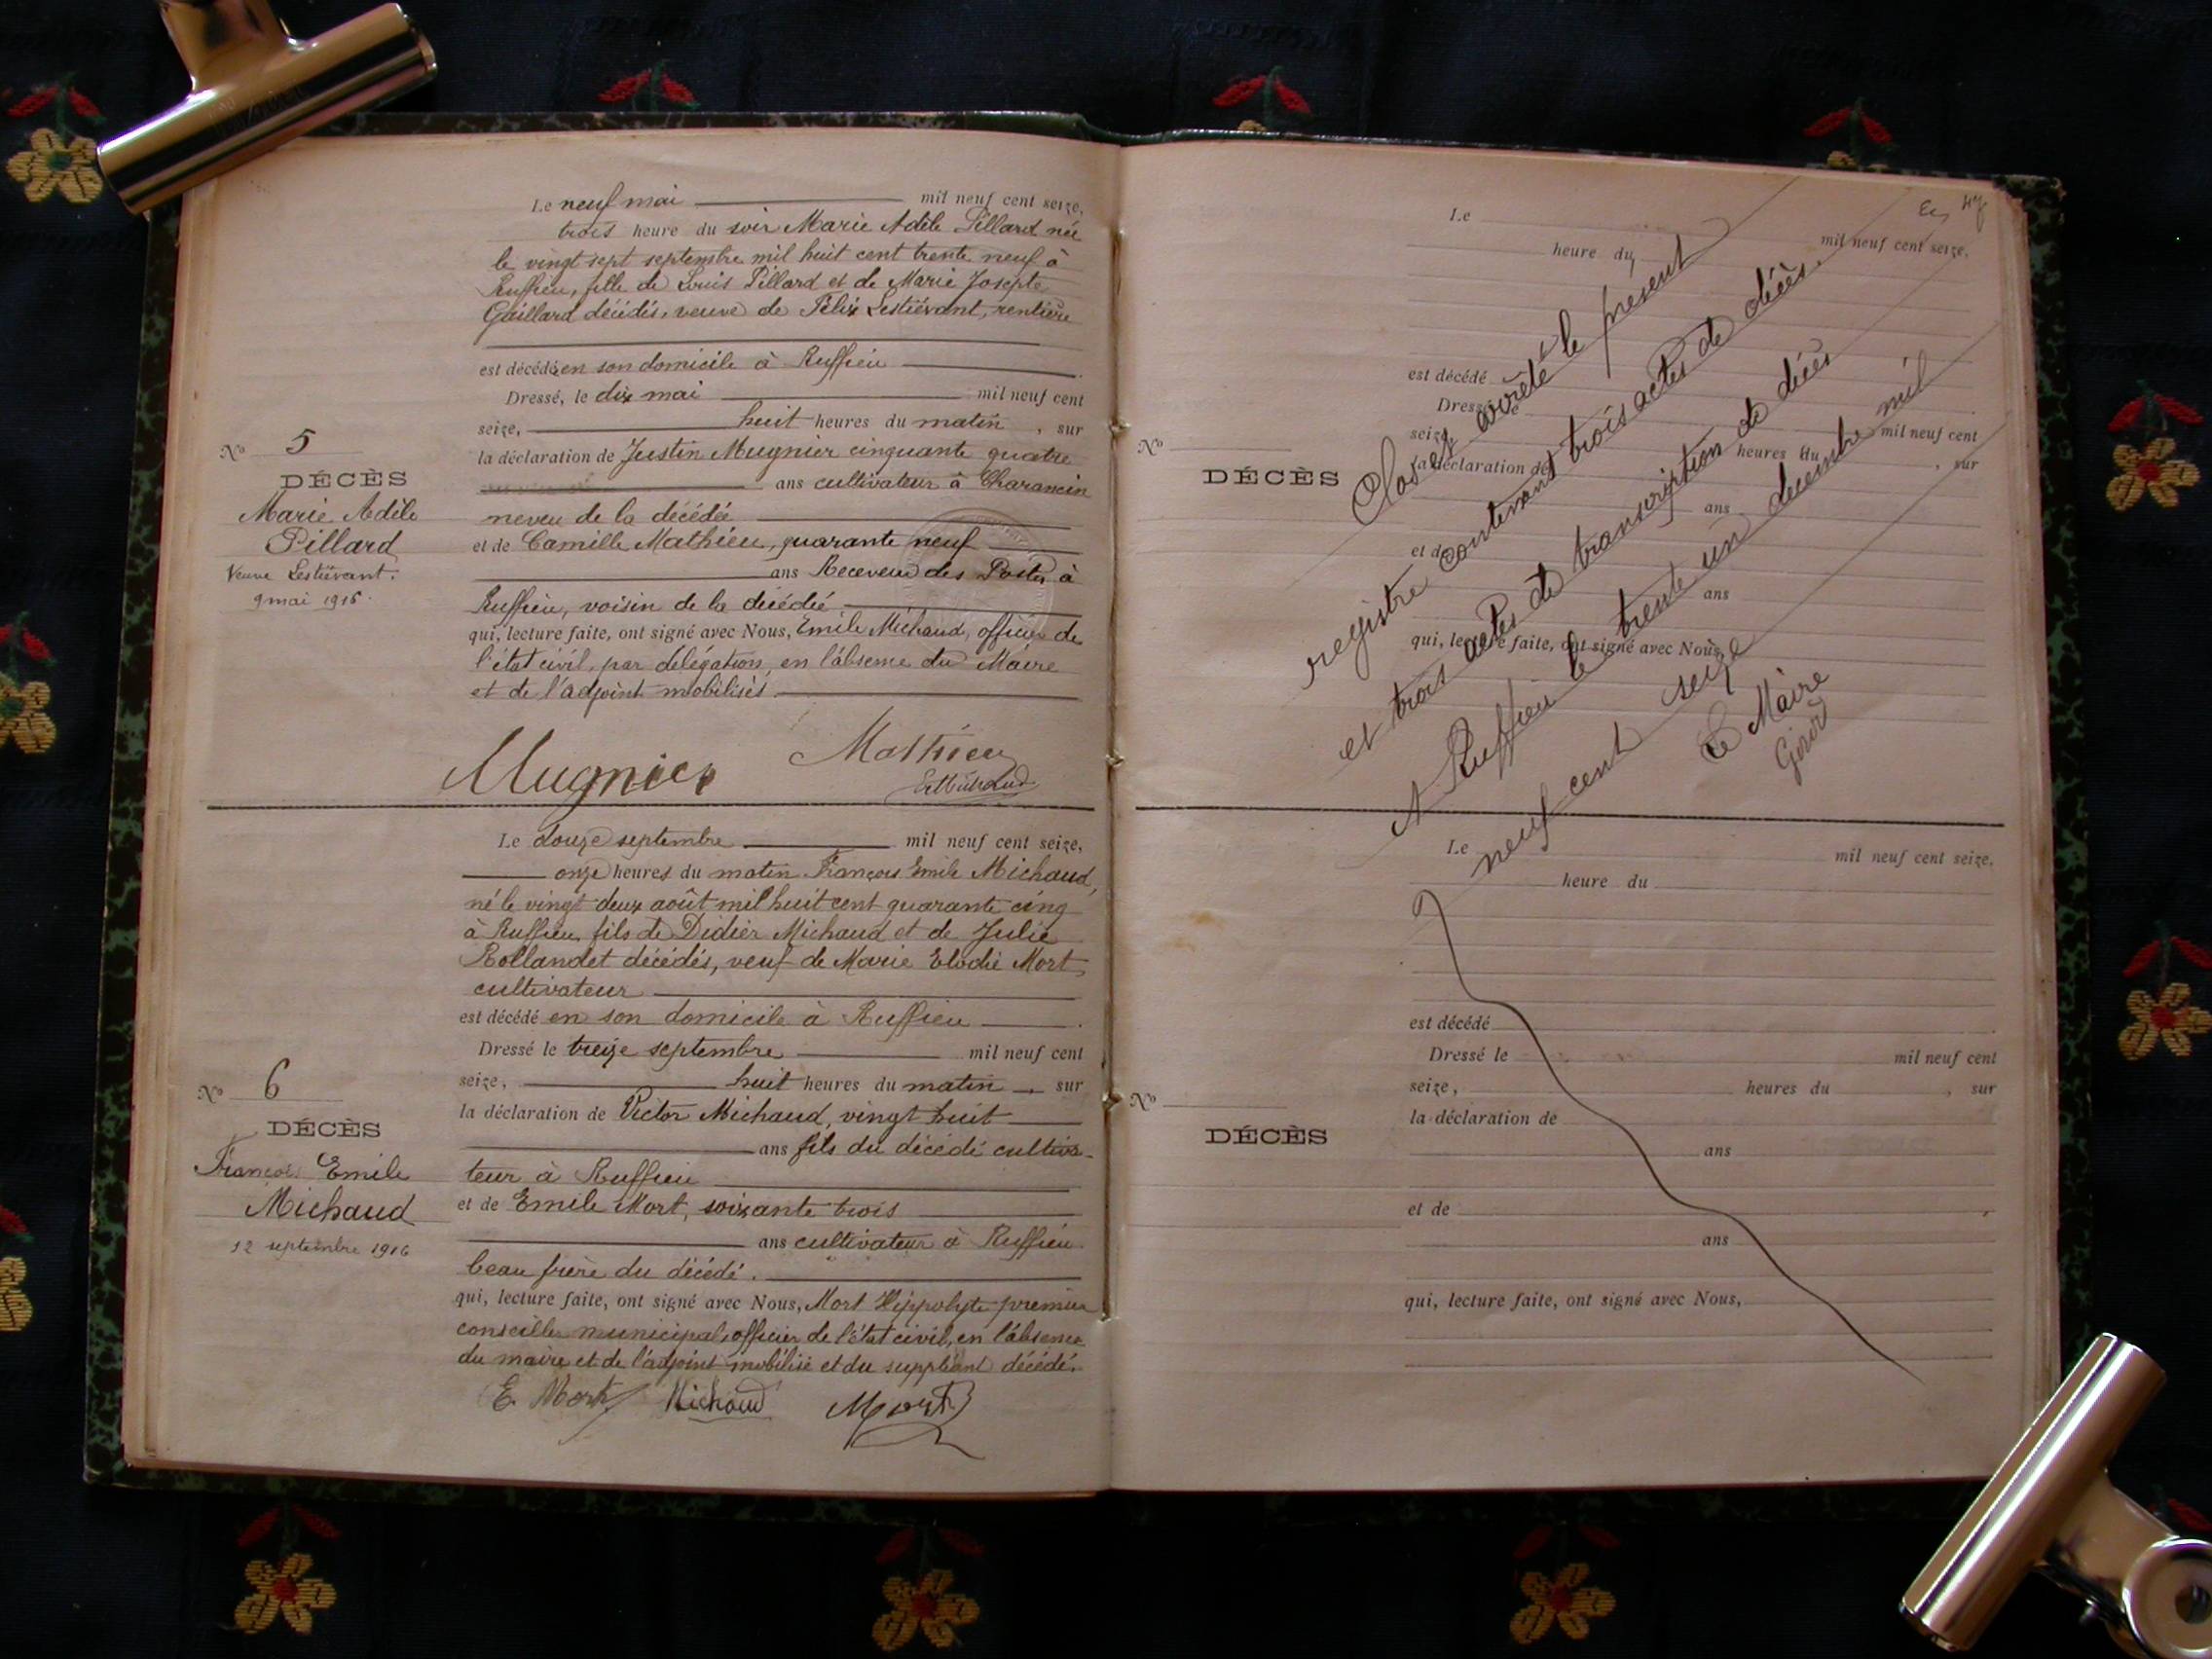 Le neuf mai mil neuf cent seize,
trois heure du soir Marie Adèle Pillard née
le vingt sept septembre mil huit cent trente neuf à
Ruffieu, fille de Louis Pillard et de Marie Josepte
Gaillard décédés, veuve de Félix Lestiévant, rentière
est décédée en son domicile à Ruffieu
Dressé, le dix mai mil neuf cent
seize, huit heures du matin, sur
la déclaration de Justin Mugnier cinquante quatre
ans cultivateur à Charancin
neveu de la décédée
et de Camille Mathieu, quarante neuf
ans Receveur des Postes à
Ruffieu, voisin de la décédée
qui, lecture faite, ont signé avec Nous, Emile Michaud, officier de
l'état civil, par délégation, en l'absence du Maire
et de l'adjoint mobilisés.
Mugnier Mathieu
E Michaud
No 5
DÉCÈS
Marie Adèle
Pillard
Veuve Lestiévant.
9 mai 1916.
Le douze septembre mil neuf cent seize,
onze heures du matin François Emile Michaud,
né le vingt deux août mil huit cent quarante cinq
à Ruffieu, fils de Didier Michaud et de Julie
Rollandet décédés, veuf de Marie Elodie Mort,
cultivateur
est décédé en son domicile à Ruffieu
Dressé le treize septembre mil neuf cent
seize, huit heures du matin, sur
la déclaration de Victor Michaud, vingt huit
ans fils du décédé cultiva-
teur à Ruffieu
et de Emile Mort, soixante trois
ans cultivateur à Ruffieu
beau frère du décédé.
qui, lecture faite, ont signé avec Nous, Mort Hippolyte premier
conseiller municipal, officier de l'état civil, en l'absence
du maire et de l'adjoint mobilisé et du suppléant décédé.
E. Mort Michaud Mort
No 6
DÉCÈS
François Emile
Michaud
12 septembre 1916
Le mil neuf cent seize.
heure du
est décédé
Dressé le mil neuf cent
seize, heures du, sur
la déclaration de
ans
et de
ans
qui, lecture faite, ont signé avec Nous,
No
DÉCÈS
Clos et arrêté le présent
registre contenant trois actes de décès
et trois actes de transcription de décès
A Ruffieu le trente un décembre mil
neuf cent seize
Le Maire
Girod
Le mil neuf cent seize.
heure du
est décédé
Dressé le mil neuf cent
seize, heures du, sur
la déclaration de
ans
et de
ans
qui, lecture faite, ont signé avec Nous,
No
DÉCÈS